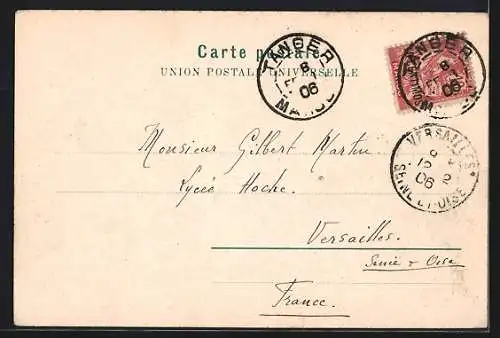 Carte postale
UNION POSTALE UNIVERSELLE
TANGER
8
06
MAROC
TANGER
8
06
VERSAILLES
06
SEINE-ET-OISE
Monsieur Gilbert Martin
Lycée Hoche.
Versailles.
Seine & Oise
France.